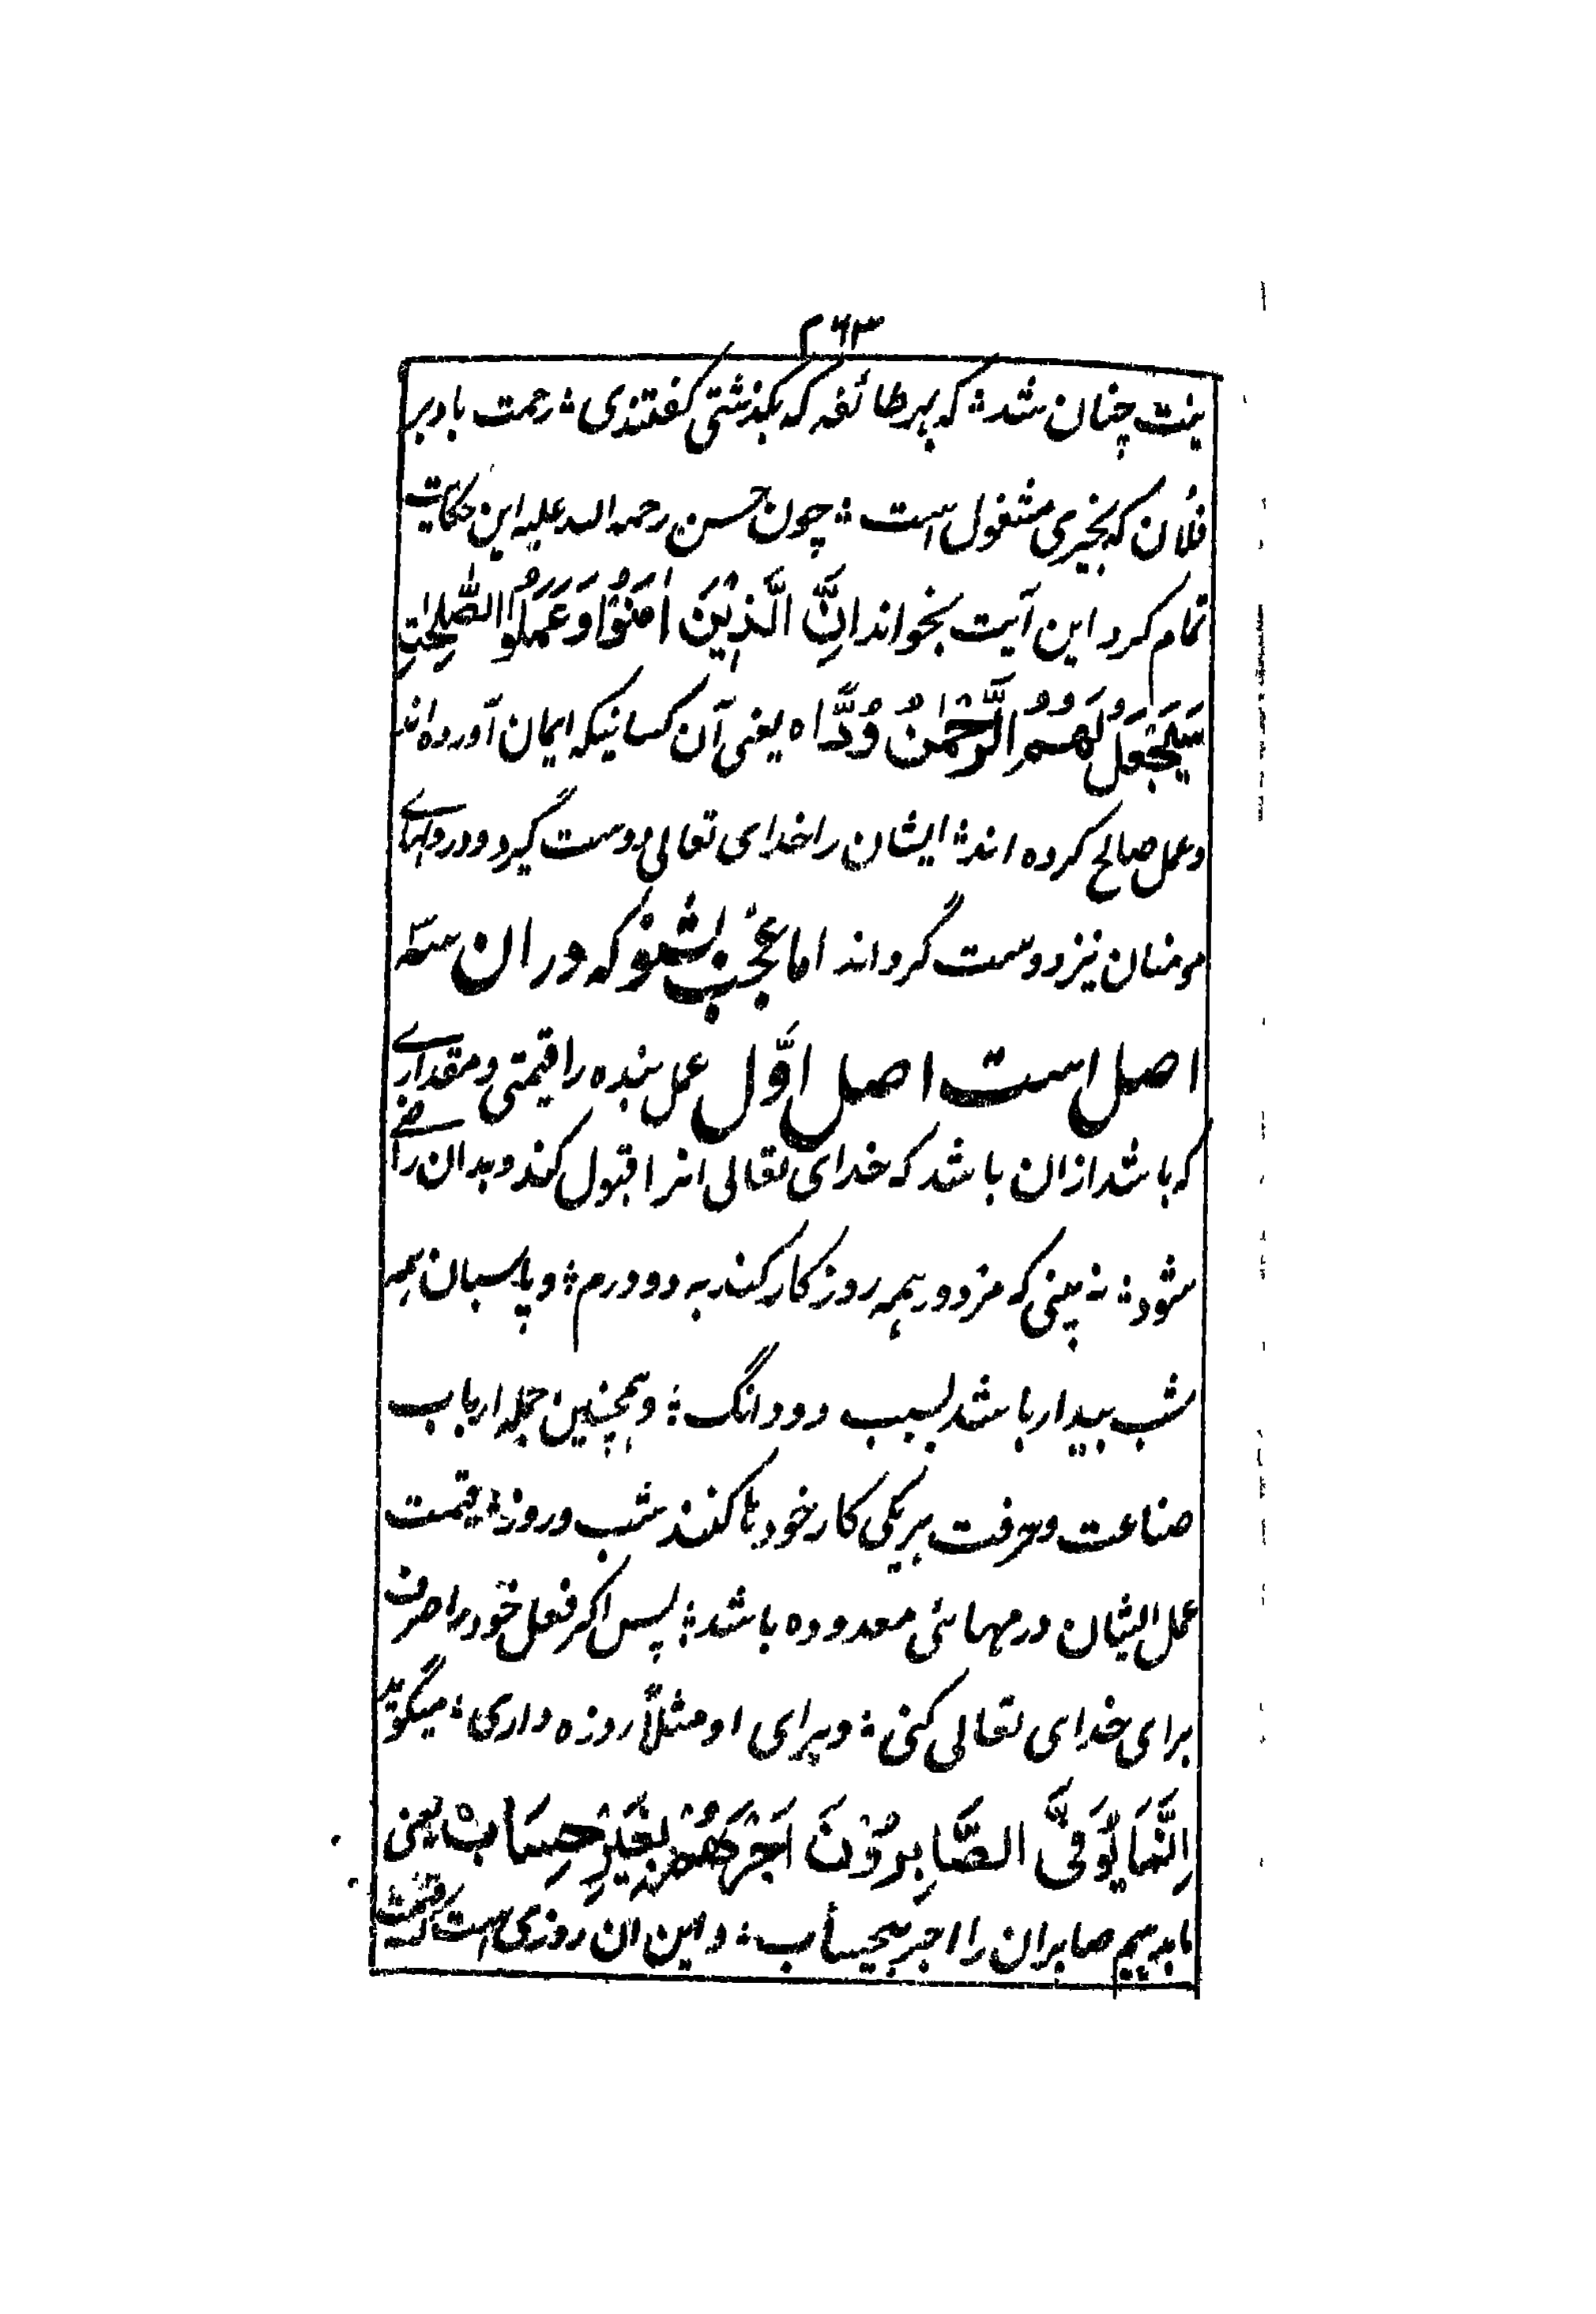 ۲۶۳
نیت چنان شد؛ که بهر طائفه که بگذشتی گفتندی؛ رحمت باد بر
فلان که بخیری مشغول است؛ چون حسن رحمه الله علیه این حکایت
تمام کرد این آیت بخواند اِنَّ الَّذِیْنَ اٰمَنُوْا وَعَمِلُوا الصّٰلِحٰتِ
سَیَجْعَلُ لَهُمُ الرَّحْمٰنُ وُدًّا ه یعنی آن کسانیکه ایمان آورده اند
وعمل صالح کرده اند؛ ایشان را خدای تعالی دوست گیرد و در دلهاے
مومنان نیز دوست گرداند اما عجب بشنو که در ان سه
اصل است اصل اوّل عمل بنده را قیمتی و مقدارے
که باشد ازان باشد که خدای تعالی انرا قبول کند و بدان راضے
شود؛ نه بینی که مزدور همه روز کار کند به دو درم؛ و پاسبان همه
شب بیدار باشد بسبب دو دانگ؛ و همچنین جمله ارباب
صناعت و حرفت هر یکی کار خود ها کنند شب و روز؛ قیمت
عمل ایشان درمهائی معدوده باشد؛ پس اگر فعل خود را صرف
برای خدای تعالی کنی؛ و برای او مثلاً روزه داری؛ میگوید
اِنَّمَا یُوَفَّی الصَّابِرُوْنَ اَجْرَهُمْ بِغَیْرِ حِسَابْ یعنی
ما بدهیم صابران را اجر بیحساب؛ و این ان روزی است که قیمت